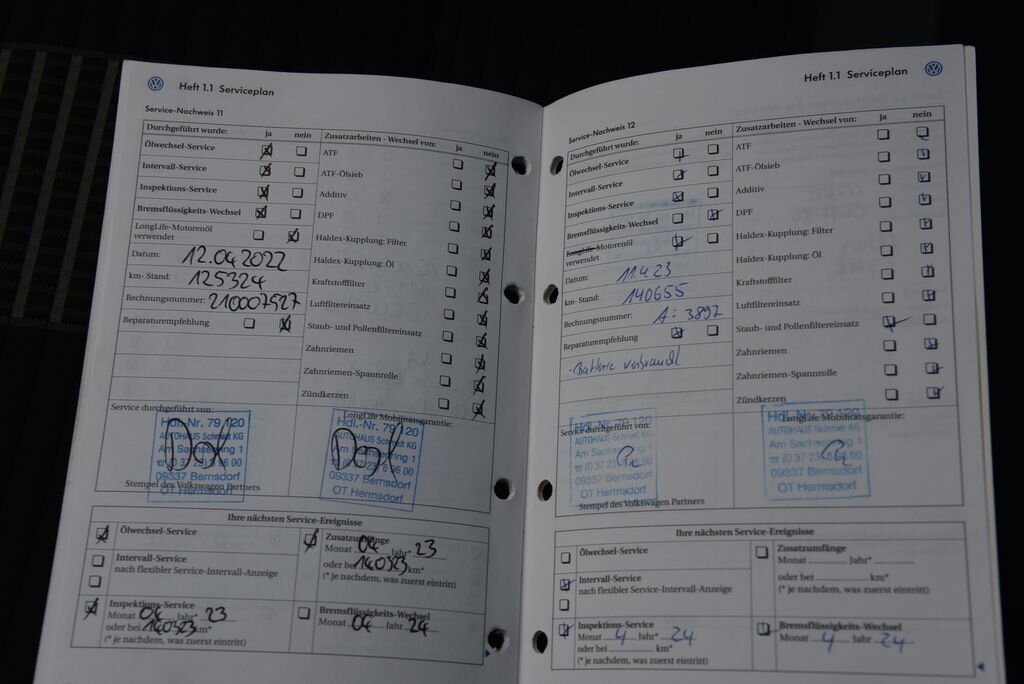 Heft 1.1 Serviceplan
Service-Nachweis 11
Durchgeführt wurde: ja nein
Ölwechsel-Service
Intervall-Service
Inspektions-Service
Bremsflüssigkeits-Wechsel
LongLife-Motorenöl
verwendet
Datum: 12.04.2022
km-Stand: 125324
Rechnungsnummer: 210007527
Reparaturempfehlung
Zusatzarbeiten - Wechsel von: ja nein
ATF
ATF-Ölsieb
Additiv
DPF
Haldex-Kupplung: Filter
Haldex-Kupplung: Öl
Kraftstofffilter
Luftfiltereinsatz
Staub- und Pollenfiltereinsatz
Zahnriemen
Zahnriemen-Spannrolle
Zündkerzen
Service durchgeführt von:
Hdl.-Nr. 79 120
AUTOHAUS Schmidt KG
Am Sachsenring 1
09337 Bernsdorf
OT Hermsdorf
Stempel des Volkswagen Partners
LongLife Mobilitätsgarantie:
Hdl.-Nr. 79 120
AUTOHAUS Schmidt KG
Am Sachsenring 1
09337 Bernsdorf
OT Hermsdorf
Ihre nächsten Service-Ereignisse
Ölwechsel-Service
Intervall-Service
nach flexibler Service-Intervall-Anzeige
Inspektions-Service
Monat 04 Jahr* 23
oder bei 140323 km*
(* je nachdem, was zuerst eintritt)
Zusatzumfänge
Monat 04 Jahr* 23
oder bei 140323 km*
(* je nachdem, was zuerst eintritt)
Bremsflüssigkeits-Wechsel
Monat 04 Jahr 24
Heft 1.1 Serviceplan
Service-Nachweis 12
Durchgeführt wurde: ja nein
Ölwechsel-Service
Intervall-Service
Inspektions-Service
Bremsflüssigkeits-Wechsel
LongLife-Motorenöl
verwendet
Datum: 11.4.23
km- Stand: 140655
Rechnungsnummer: A: 3892
Reparaturempfehlung
-Batterie verbraucht
Zusatzarbeiten - Wechsel von: ja nein
ATF
ATF-Ölsieb
Additiv
DPF
Haldex-Kupplung: Filter
Haldex-Kupplung: Öl
Kraftstofffilter
Luftfiltereinsatz
Staub- und Pollenfiltereinsatz
Zahnriemen
Zahnriemen-Spannrolle
Zündkerzen
Service durchgeführt von:
Hdl.-Nr. 79 120
AUTOHAUS Schmidt KG
Am Sachsenring 1
09337 Bernsdorf
OT Hermsdorf
Stempel des Volkswagen Partners
LongLife Mobilitätsgarantie:
Hdl.-Nr. 79 120
AUTOHAUS Schmidt KG
Am Sachsenring 1
09337 Bernsdorf
OT Hermsdorf
Ihre nächsten Service-Ereignisse
Ölwechsel-Service
Intervall-Service
nach flexibler Service-Intervall-Anzeige
Inspektions-Service
Monat 4 Jahr* 24
oder bei km*
(* je nachdem, was zuerst eintritt)
Zusatzumfänge
Monat Jahr*
oder bei km*
(* je nachdem, was zuerst eintritt)
Bremsflüssigkeits-Wechsel
Monat 4 Jahr 24